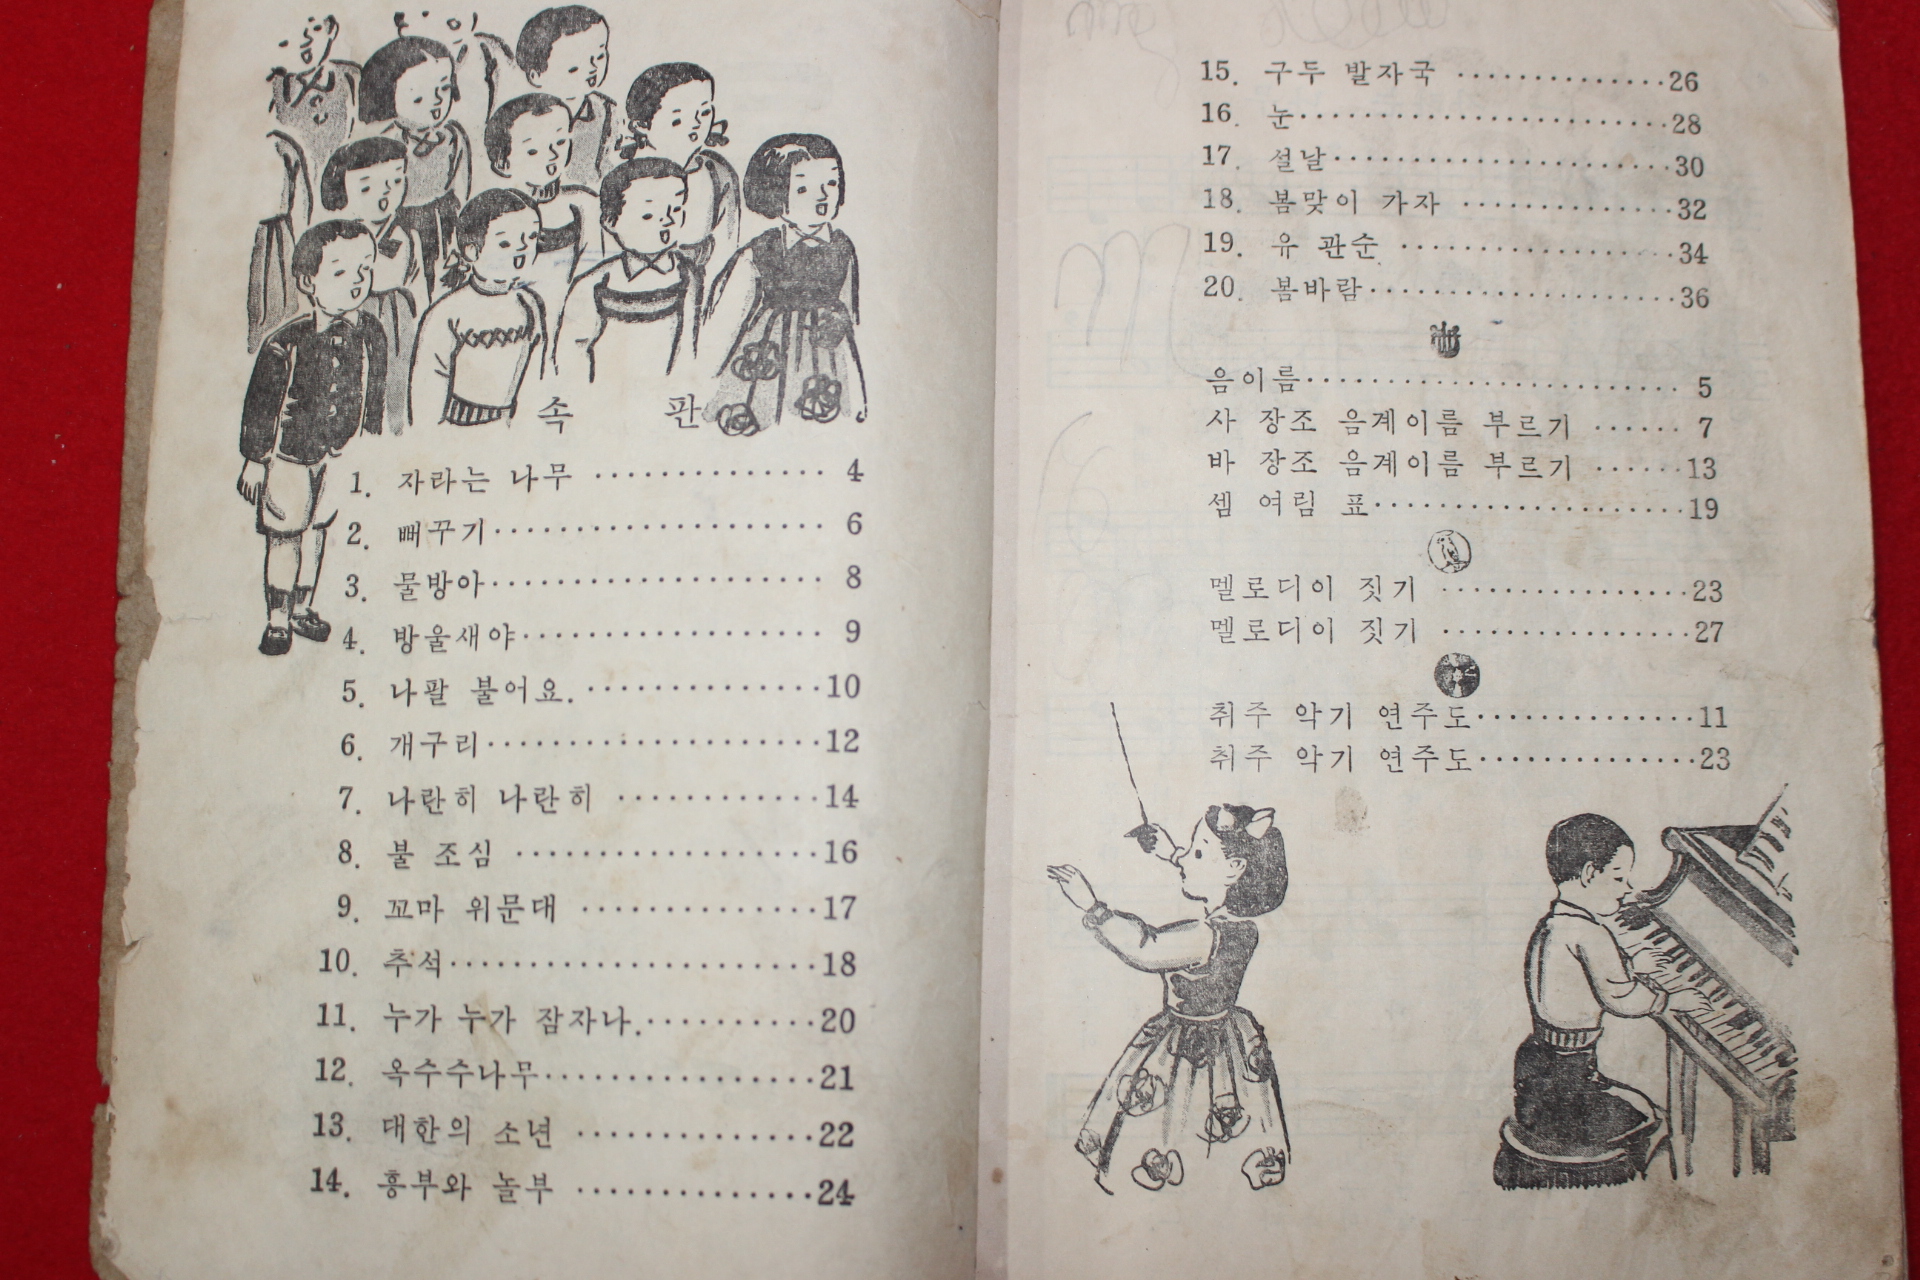 속 판
1. 자라는 나무 ·············· 4
2. 뻐꾸기···················· 6
3. 물방아···················· 8
4. 방울새야·················· 9
5. 나팔 불어요. ··············10
6. 개구리····················12
7. 나란히 나란히 ·············14
8. 불 조심 ···················16
9. 꼬마 위문대 ···············17
10. 추석······················18
11. 누가 누가 잠자나.···········20
12. 옥수수나무·················21
13. 대한의 소년 ···············22
14. 흥부와 놀부 ···············24
15. 구두 발자국 ··············26
16. 눈·······················28
17. 설날·····················30
18. 봄맞이 가자 ·············32
19. 유 관순 ·················34
20. 봄바람···················36
음이름······················· 5
사 장조 음계이름 부르기 ······ 7
바 장조 음계이름 부르기 ······13
셈 여림 표···················19
멜로디이 짓기 ················23
멜로디이 짓기 ················27
취주 악기 연주도··············11
취주 악기 연주도··············23